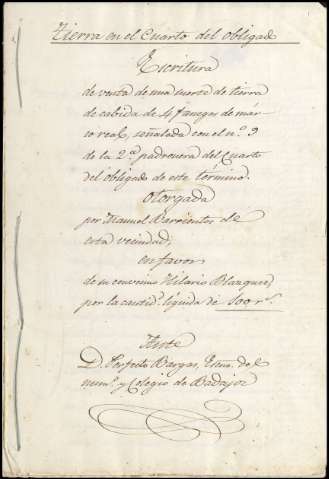 Tierra en el Cuarto del obligado
Escritura
de venta de una suerte de tierra
de cabida de 4 fanegas de mar-
co real, señalada con el n.º 9
de la 2.ª padronera del Cuarto
del obligado de este término.
Otorgada
por Manuel Barrientos de
esta vecindad,
en favor
de su convecino Hilario Blazquez
por la cantid.ᵈ líquida de 100 r.ˢ
Ante
D. Perfecto Bargas, Esno. del
num.º y Colegio de Badajoz